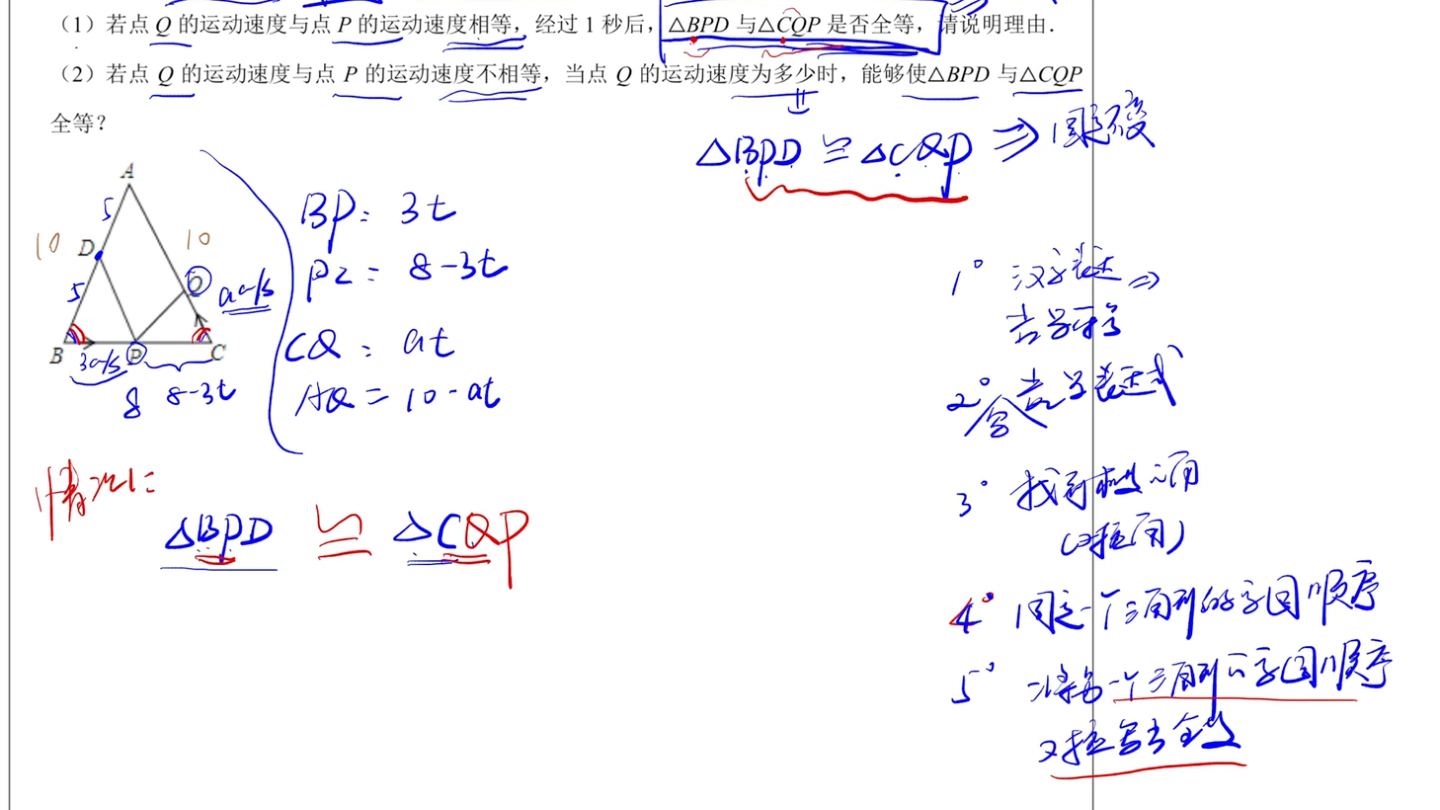 (1)若点 Q 的运动速度与点 P 的运动速度相等，经过 1 秒后，△BPD 与△CQP 是否全等，请说明理由．
(2)若点 Q 的运动速度与点 P 的运动速度不相等，当点 Q 的运动速度为多少时，能够使△BPD 与△CQP
全等？
△BPD ≌ △CQP ⇒ 固定不变
A
5
BP = 3t
10 D 10
PC = 8-3t
5 Q
B P C
3
8 8-3t
CQ = at
AQ = 10-at
1° 汉字表达 ⇒
2° 含 表达式
3° 找 角
(对应角)
情况1:
△BPD ≌ △CQP
4° 固定一个三角形的字母顺序
5° 将另一个三角形的字母顺序
对应写出全等